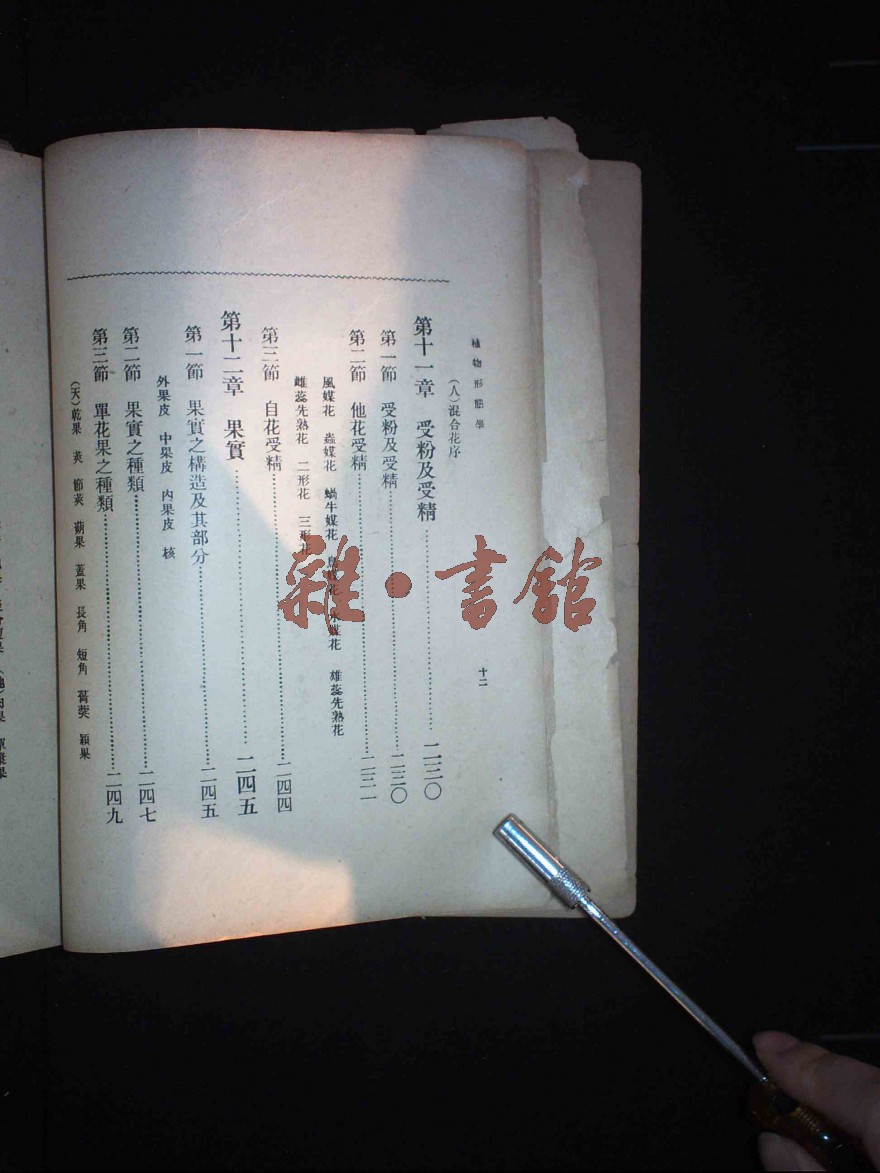 植物形態學
十二
(人)混合花序
第十一章 受粉及受精……二三〇
第一節 受粉及受精……二三〇
第二節 他花受精……二三一
風媒花 蟲媒花 蝸牛媒花 鳥媒花 水媒花 雄蕊先熟花
雌蕊先熟花 二形花 三形花
第三節 自花受精……二四四
第十二章 果實……二四五
第一節 果實之構造及其部分……二四五
外果皮 中果皮 內果皮 核
第二節 果實之種類……二四七
第三節 單花果之種類……二四九
(天)乾果 莢 節莢 蒴果 蓋果 長角 短角 蓇葖 穎果
雜·書館